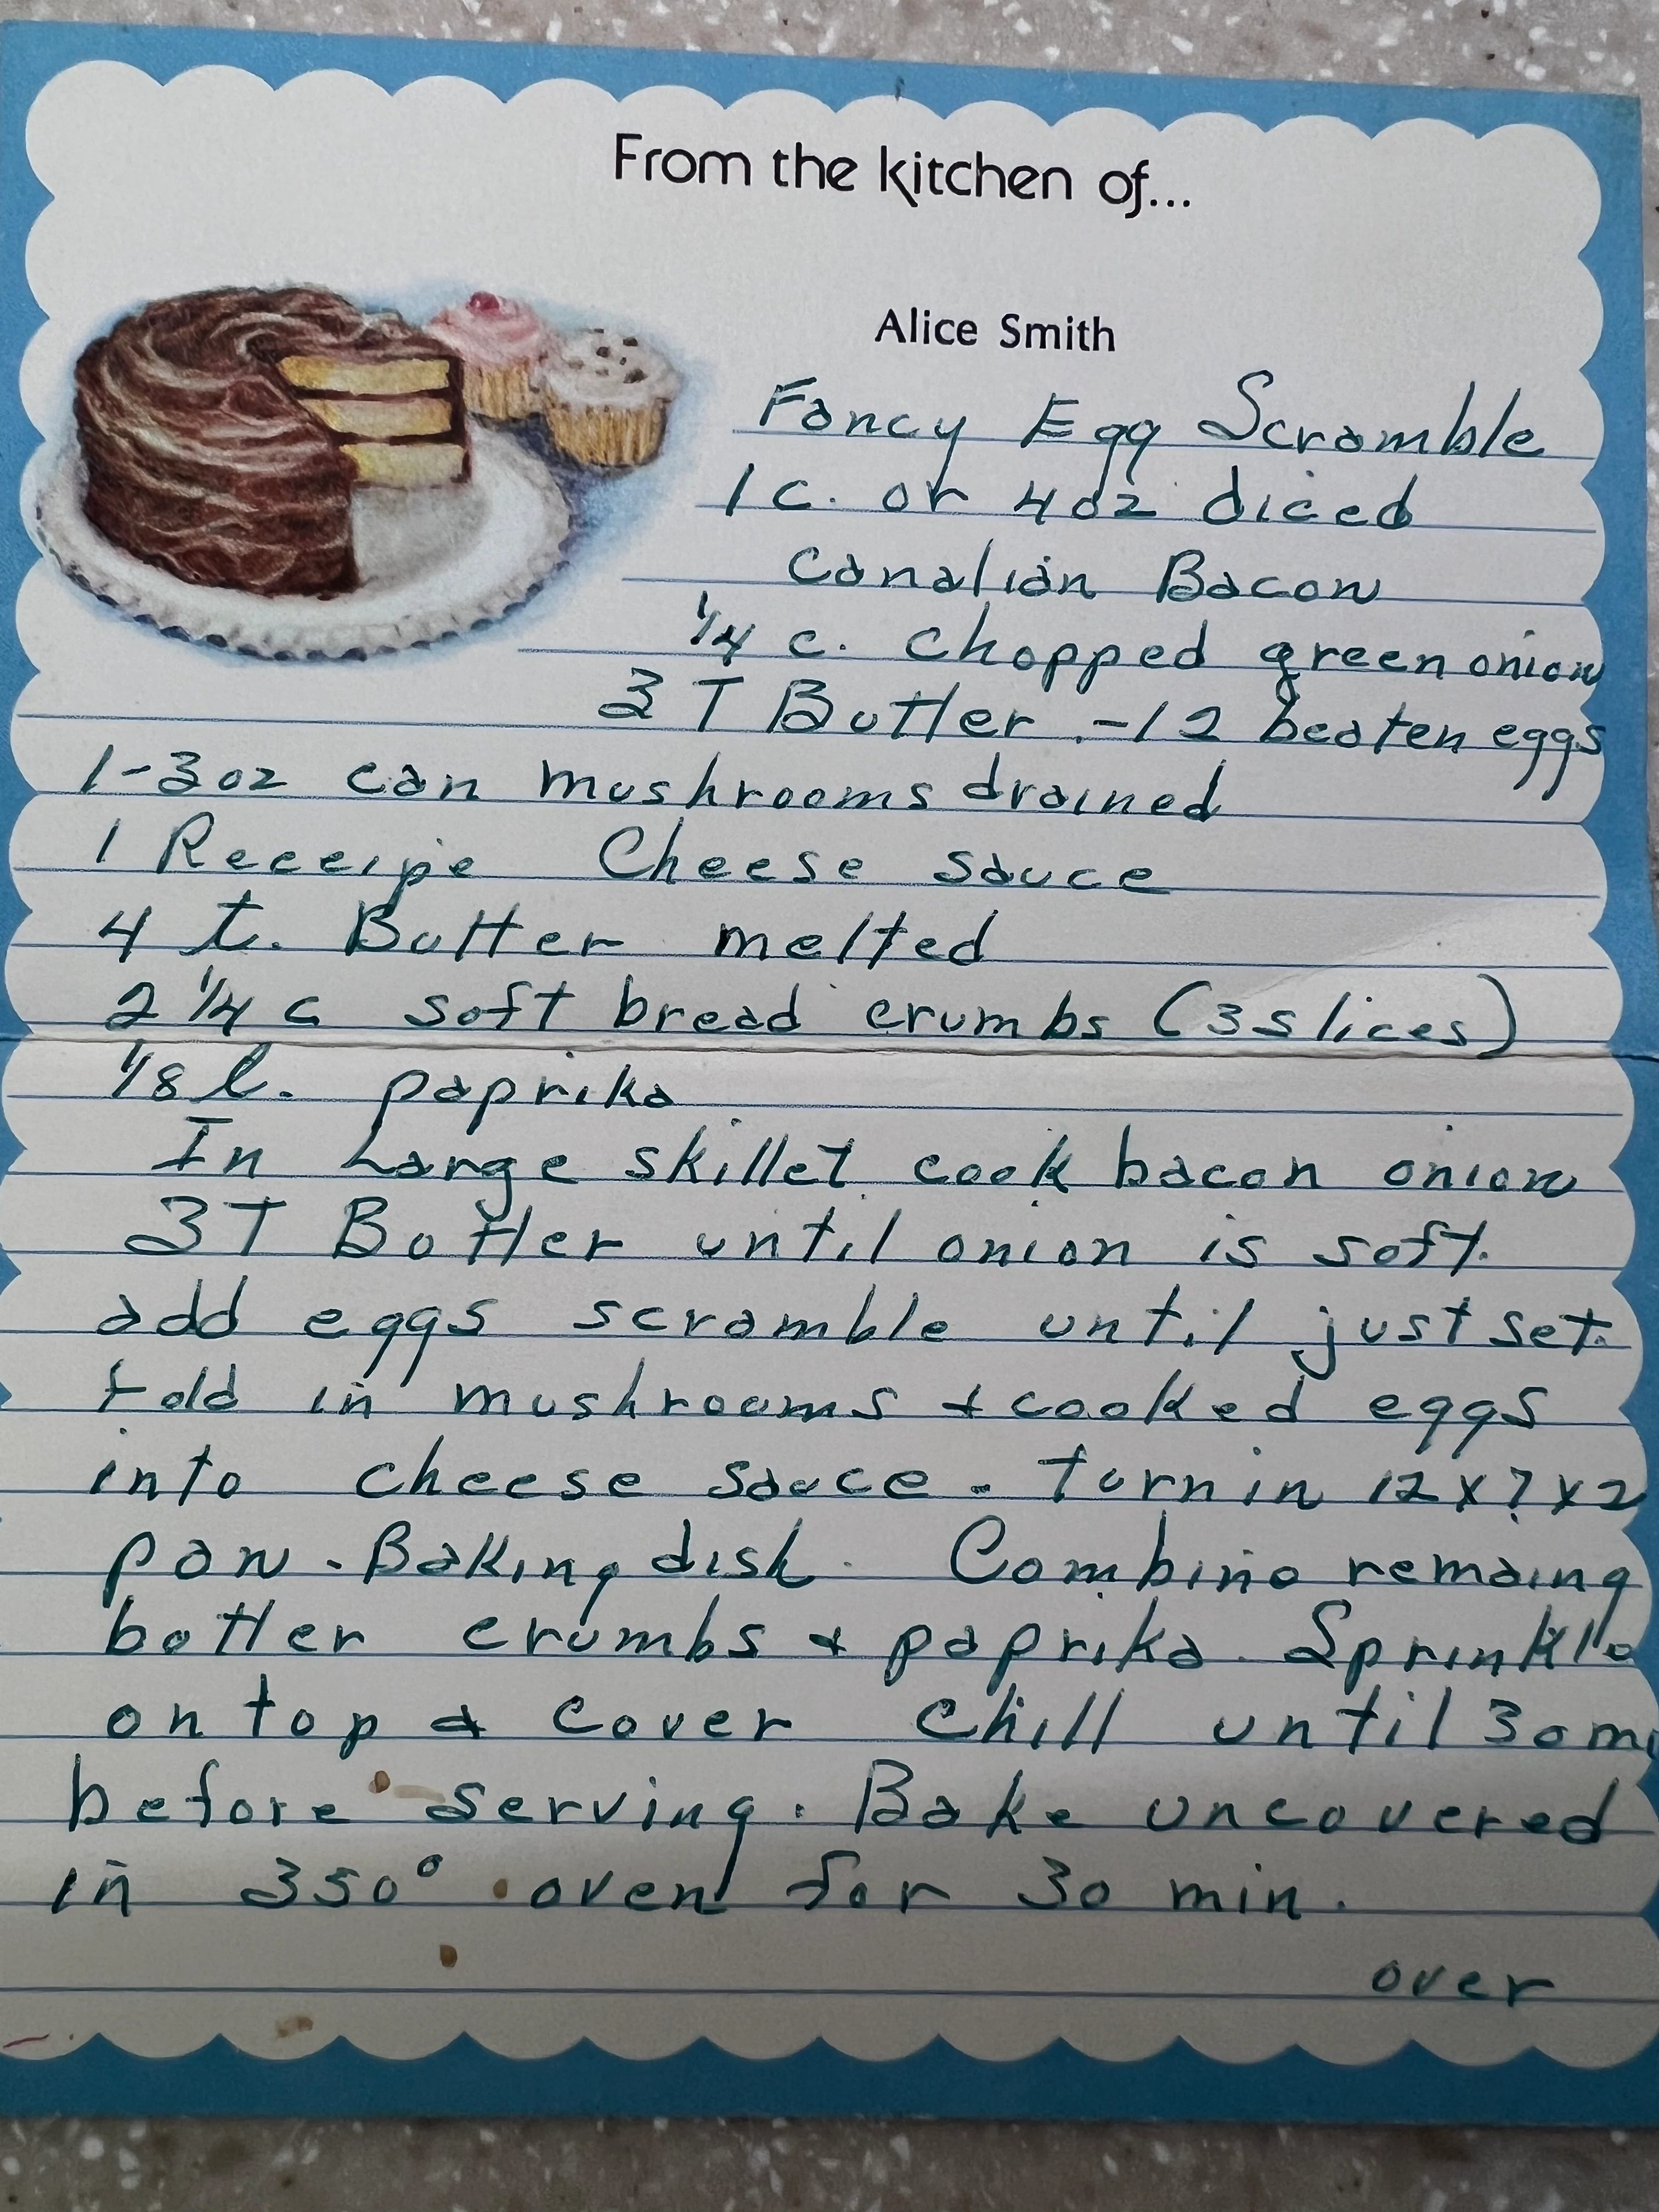 From the kitchen of...
Alice Smith
Fancy Egg Scramble
1 c. or 4oz diced
Canadian Bacon
1/4 c. chopped green onion
3 T Butter - 12 beaten eggs
1-3oz can mushrooms drained
1 Receipe Cheese Sauce
4 t. Butter melted
2 1/4 c soft bread crumbs (3 slices)
1/8 t. paprika
In Large skillet cook bacon onion
3T Butter until onion is soft.
add eggs scramble until just set.
fold in mushrooms + cooked eggs
into cheese sauce - turn in 12 x 7 x 2
pan - Baking dish. Combine remaing
butter crumbs + paprika. Sprinkle
on top & cover chill until 30 mi
before serving. Bake uncovered
in 350° oven for 30 min.
over